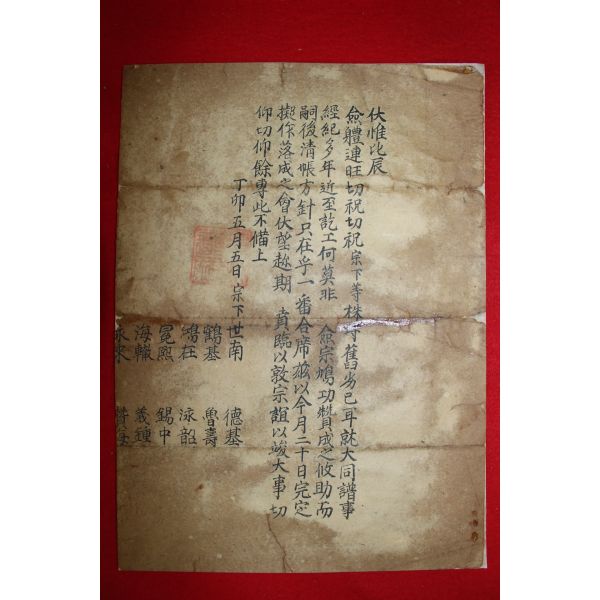 伏惟比辰
僉體連旺切祝切祝宗下等株守舊劣已耳就大同譜事
經紀多年近至訖工何莫非 僉宗鳩功贊成之攸助而
嗣後清帳方針只在乎一番合席茲以今月二十日完定
擬作落成之會伏望趁期 賁臨以敦宗誼以竣大事切
仰切仰餘專此不備上
丁卯五月五日宗下世南 德基
鶴基 魯壽
鴻在 泳韶
冕熙 錫中
海轍 義鍾